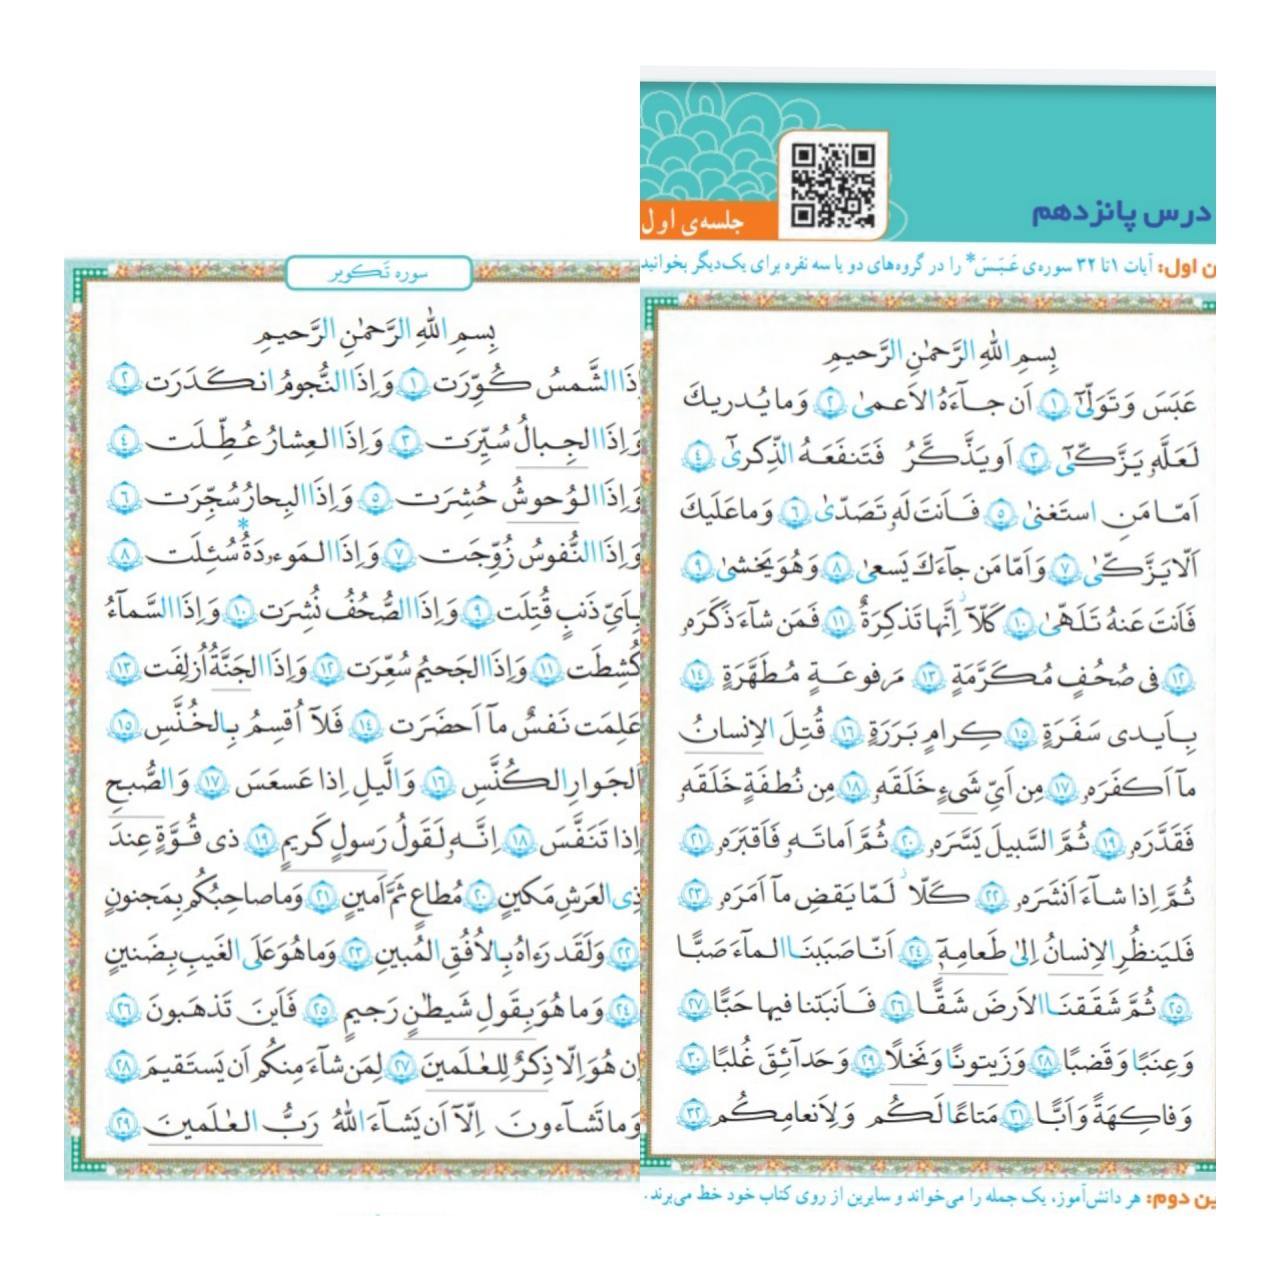 درس پانزدهم
جلسه‌ی اول
ن اول: آیات ۱ تا ۳۲ سوره‌ی عَبَسَ* را در گروه‌های دو یا سه نفره برای یک‌دیگر بخوانید
بِسمِ اللهِ الرَّحمٰنِ الرَّحیمِ
عَبَسَ وَ تَوَلّیٰٓ ۱ اَن جآءَهُ الاَعمیٰ ۲ وَ ما یُدریكَ
لَعَلَّهٗ یَزَّكّیٰٓ ۳ اَو یَذَّكَّرُ فَتَنفَعَهُ الذِّكریٰٓ ۴
اَمّا مَنِ استَغنیٰ ۵ فَاَنتَ لَهٗ تَصَدّیٰ ۶ وَ ما عَلَیكَ
اَلّا یَزَّكّیٰ ۷ وَ اَمّا مَن جآءَكَ یَسعیٰ ۸ وَ هُوَ یَخشیٰ ۹
فَاَنتَ عَنهُ تَلَهّیٰ ۱۰ كَلّآ اِنَّها تَذكِرَةٌ ۱۱ فَمَن شآءَ ذَكَرَهٗ
۱۲ فی صُحُفٍ مُكَرَّمَةٍ ۱۳ مَرفوعَةٍ مُطَهَّرَةٍ ۱۴
بِاَیدی سَفَرَةٍ ۱۵ كِرامٍ بَرَرَةٍ ۱۶ قُتِلَ الاِنسانُ
مآ اَكفَرَهٗ ۱۷ مِن اَیِّ شَیءٍ خَلَقَهٗ ۱۸ مِن نُطفَةٍ خَلَقَهٗ
فَقَدَّرَهٗ ۱۹ ثُمَّ السَّبیلَ یَسَّرَهٗ ۲۰ ثُمَّ اَماتَهٗ فَاَقبَرَهٗ ۲۱
ثُمَّ اِذا شآءَ اَنشَرَهٗ ۲۲ كَلّا لَمّا یَقضِ مآ اَمَرَهٗ ۲۳
فَلیَنظُرِ الاِنسانُ اِلیٰ طَعامِهٖٓ ۲۴ اَنّا صَبَبنَا المآءَ صَبًّا
۲۵ ثُمَّ شَقَقنَا الاَرضَ شَقًّا ۲۶ فَاَنبَتنا فیها حَبًّا ۲۷
وَ عِنَبًا وَ قَضبًا ۲۸ وَ زَیتونًا وَ نَخلًا ۲۹ وَ حَدآئِقَ غُلبًا ۳۰
وَ فاكِهَةً وَ اَبًّا ۳۱ مَتاعًا لَكُم وَ لِاَنعامِكُم ۳۲
ین دوم: هر دانش‌آموز، یک جمله را می‌خواند و سایرین از روی کتاب خود خط می‌برند.
سوره تَكویر
بِسمِ اللهِ الرَّحمٰنِ الرَّحیمِ
اِذَا الشَّمسُ كُوِّرَت ۱ وَ اِذَا النُّجومُ انكَدَرَت ۲
وَ اِذَا الجِبالُ سُیِّرَت ۳ وَ اِذَا العِشارُ عُطِّلَت ۴
وَ اِذَا الوُحوشُ حُشِرَت ۵ وَ اِذَا البِحارُ سُجِّرَت ۶
وَ اِذَا النُّفوسُ زُوِّجَت ۷ وَ اِذَا المَوءدَةُ* سُئِلَت ۸
بِاَیِّ ذَنبٍ قُتِلَت ۹ وَ اِذَا الصُّحُفُ نُشِرَت ۱۰ وَ اِذَا السَّمآءُ
كُشِطَت ۱۱ وَ اِذَا الجَحیمُ سُعِّرَت ۱۲ وَ اِذَا الجَنَّةُ اُزلِفَت ۱۳
عَلِمَت نَفسٌ مآ اَحضَرَت ۱۴ فَلآ اُقسِمُ بِالخُنَّسِ ۱۵
اَلجَوارِ الكُنَّسِ ۱۶ وَ الَّیلِ اِذا عَسعَسَ ۱۷ وَ الصُّبحِ
اِذا تَنَفَّسَ ۱۸ اِنَّهٗ لَقَولُ رَسولٍ كَریمٍ ۱۹ ذی قُوَّةٍ عِندَ
ذِی العَرشِ مَكینٍ ۲۰ مُطاعٍ ثَمَّ اَمینٍ ۲۱ وَ ما صاحِبُكُم بِمَجنونٍ
۲۲ وَ لَقَد رَءاهُ بِالاُفُقِ المُبینِ ۲۳ وَ ما هُوَ عَلَی الغَیبِ بِضَنینٍ
۲۴ وَ ما هُوَ بِقَولِ شَیطٰنٍ رَجیمٍ ۲۵ فَاَینَ تَذهَبونَ ۲۶
اِن هُوَ اِلّا ذِكرٌ لِلعٰلَمینَ ۲۷ لِمَن شآءَ مِنكُم اَن یَستَقیمَ ۲۸
وَ ما تَشآءونَ اِلّآ اَن یَشآءَ اللهُ رَبُّ العٰلَمینَ ۲۹